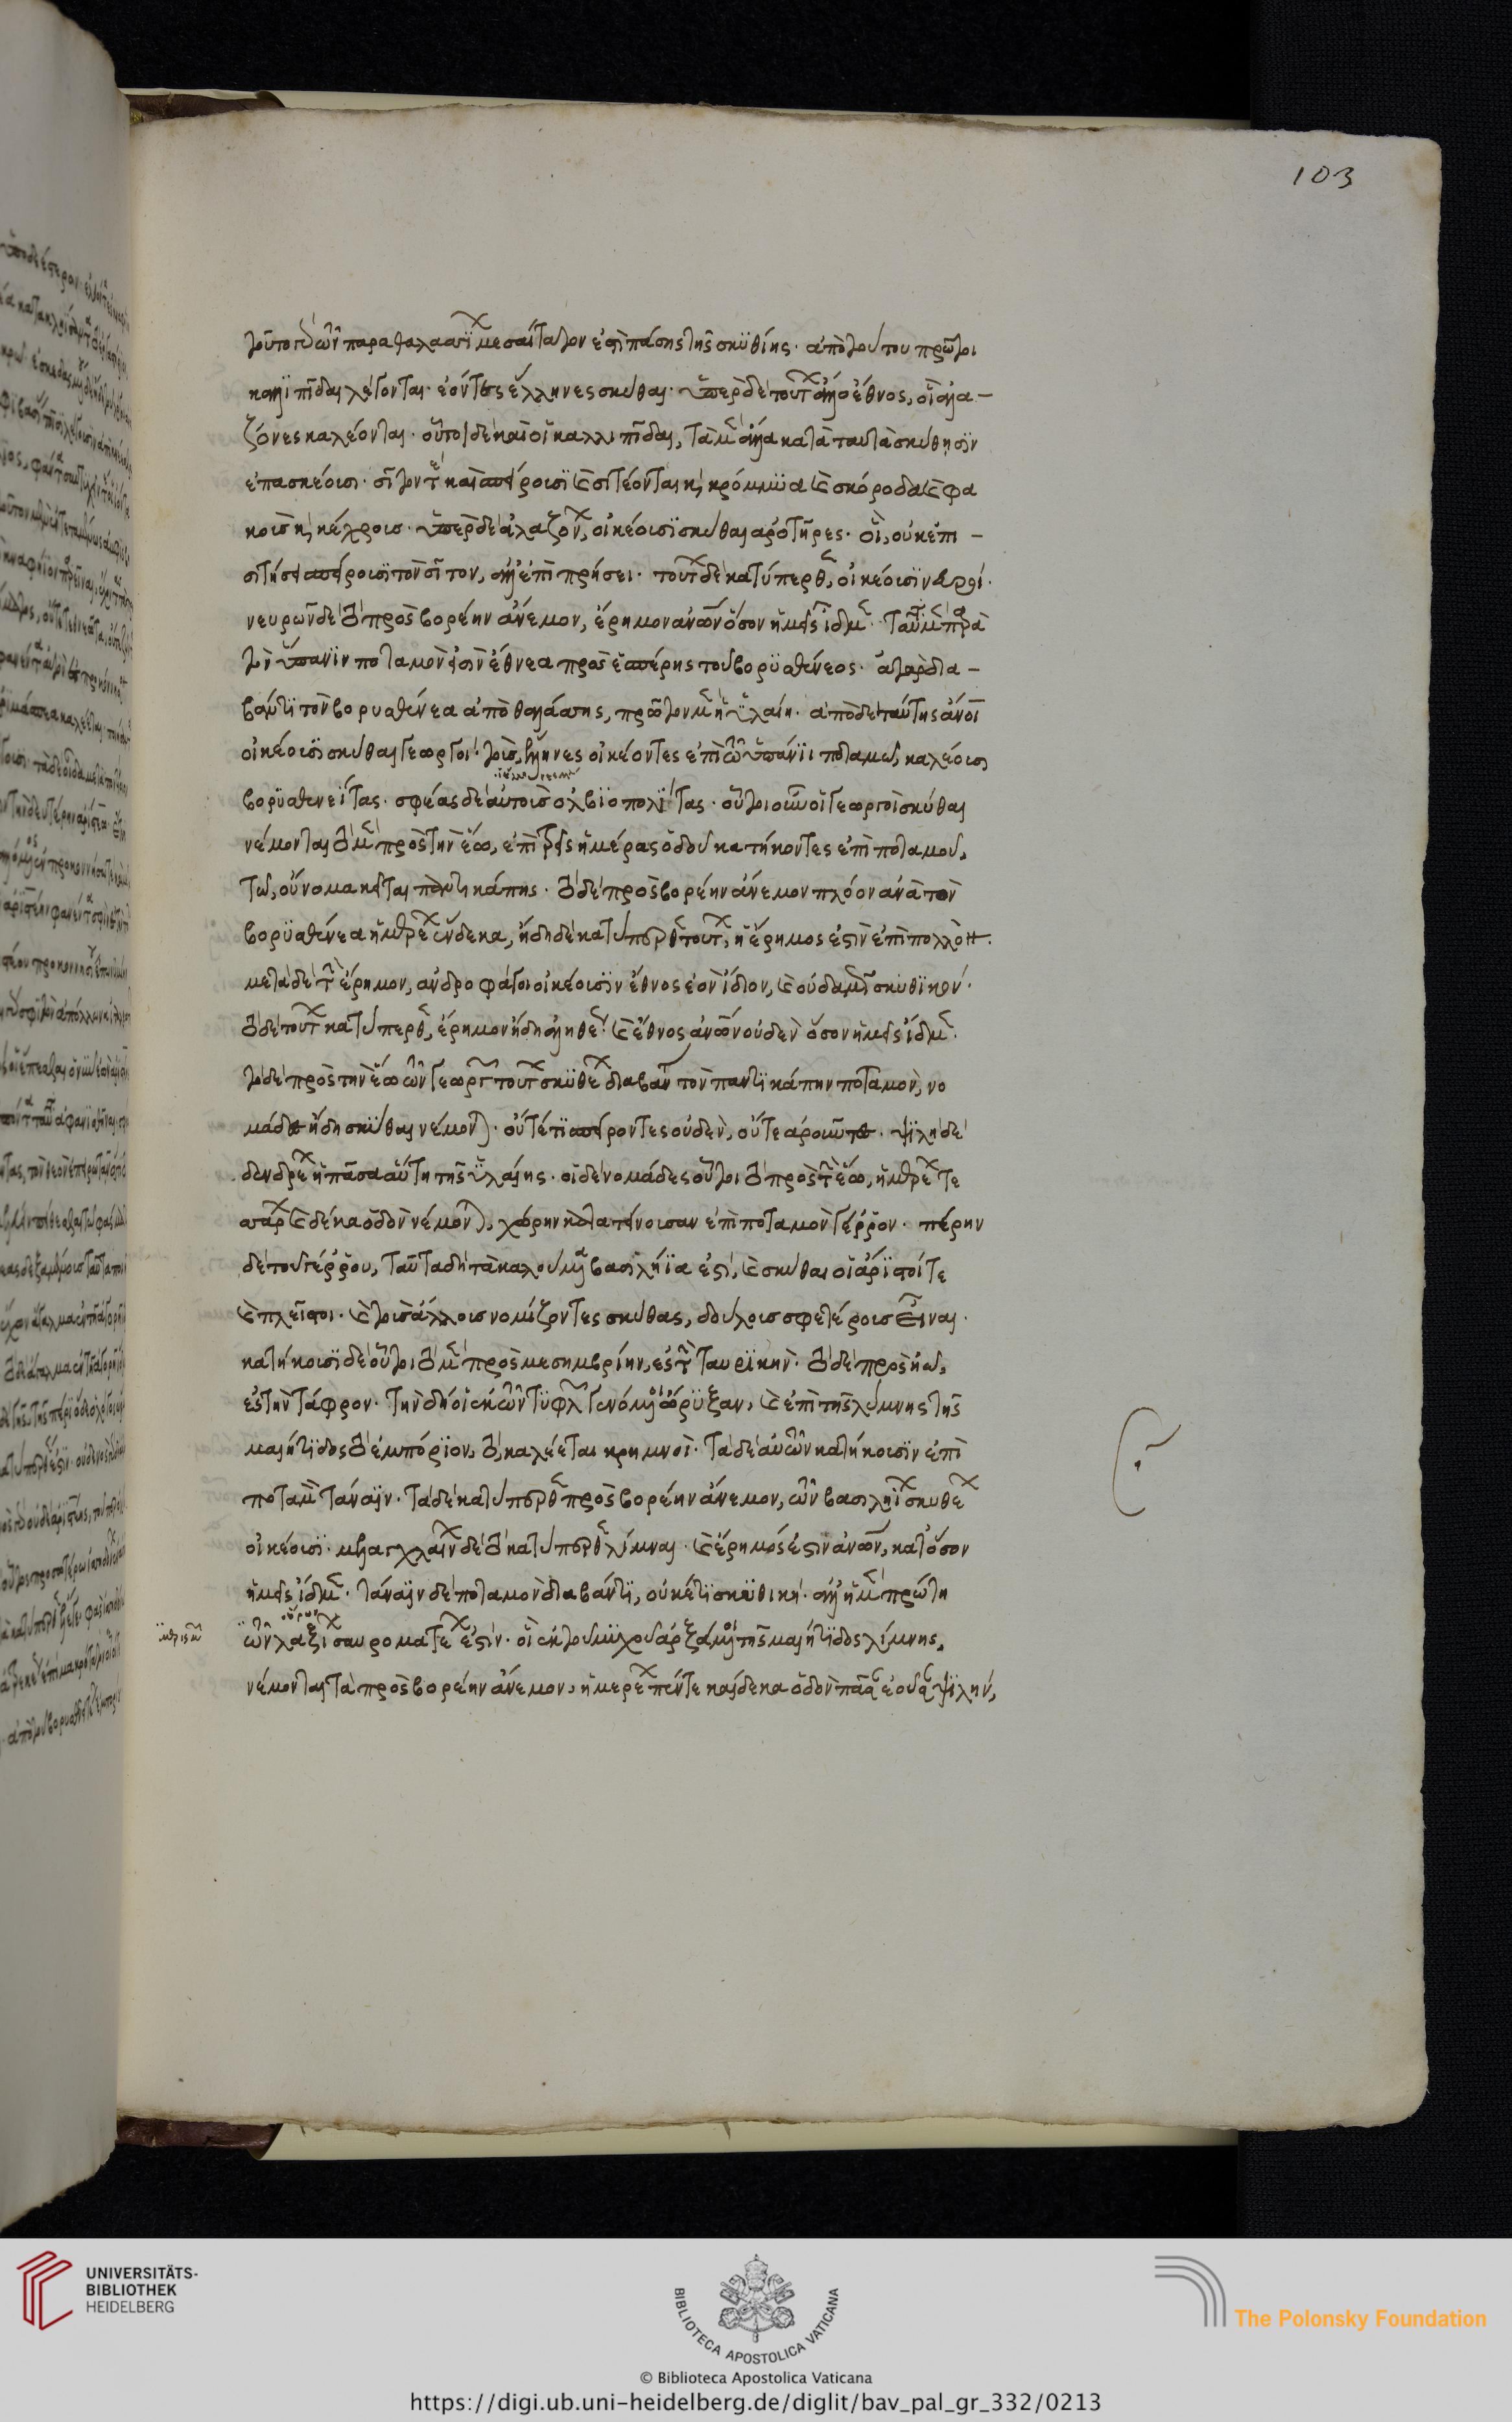 τοῦτο γὰρ τῶν παραθαλασσίων μεσαίτατον ἐστὶ πάσης τῆς σκυθίης· ἀπὸ τούτου πρῶτοι
καλλιπίδαι λέγονται· ἐόντες ἕλληνες σκύθαι· ὑπὲρ δὲ τούτων ἄλλο ἔθνος, οἳ ἀλα-
ζόνες καλέονται· οὗτοι δὲ καὶ οἱ καλλιπίδαι, τὰ μὲν ἄλλα κατὰ ταυτὰ σκύθησιν
ἐπασκέουσι· σῖτον δὲ καὶ σπείρουσι καὶ σιτέονται καὶ κρόμμυα καὶ σκόροδα καὶ φα
κοὺς καὶ κέγχρους· ὑπὲρ δὲ ἀλαζόνων, οἰκέουσι σκύθαι ἀροτῆρες· οἳ, οὐκ ἐπι-
σιτήσει σπείρουσι τὸν σῖτον, ἀλλ' ἐπὶ πρήσει· τούτων δὲ κατύπερθεν, οἰκέουσι νευροί·
νευρῶν δὲ τὸ πρὸς βορέην ἄνεμον, ἔρημον ἀνθρώπων ὅσον ἡμεῖς ἴδμεν· ταῦτα μὲν παρὰ
τὸν ὕπανιν ποταμὸν ἐστὶν ἔθνεα πρὸς ἑσπέρης τοῦ βορυσθένεος· ἀτὰρ δια-
βάντι τὸν βορυσθένεα ἀπὸ θαλάσσης, πρῶτον μὲν ἡ ὑλαίη· ἀπὸ δὲ ταύτης ἄνω
οἰκέουσι σκύθαι γεωργοί· τοὺς ἕλληνες οἰκέοντες ἐπὶ τῶ ὑπάνι ποταμῶ, καλέουσι
βορυσθενείτας· σφέας δὲ αὐτοὺς ὀλβιοπολίτας· οὗτοι οὖν οἱ γεωργοὶ σκύθαι
νέμονται τὸ μὲν πρὸς τὴν ἕω, ἐπὶ τρεῖς ἡμέρας ὁδοῦ κατήκοντες ἐπὶ ποταμοῦ,
τῶ, οὔνομα κεῖται παντικάπης· τὸ δὲ πρὸς βορέην ἄνεμον πλόον ἀνὰ τὸν
βορυσθένεα ἡμερέων ἕνδεκα, ἤδη δὲ κατύπερθεν τούτων, ἡ ἔρημος ἐστὶν ἐπὶ πολλόν·
μετὰ δὲ τὴν ἔρημον, ἀνδροφάγοι οἰκέουσιν ἔθνος ἐὸν ἴδιον, καὶ οὐδαμῶς σκυθικόν·
τὸ δὲ τούτων κατύπερθεν, ἔρημον ἤδη ἀληθέως καὶ ἔθνος ἀνθρώπων οὐδὲν ὅσον ἡμεῖς ἴδμεν·
τὸ δὲ πρὸς τὴν ἕω τῶν γεωργῶν τούτων σκυθέων διαβάντι τὸν παντικάπην ποταμὸν, νο
μάδες ἤδη σκύθαι νέμονται· οὔτέ τι σπείροντες οὐδὲν, οὔτε ἀροῦντες· ψιλὴ δὲ
δενδρέων ἡ πᾶσα αὕτη τῆς ὑλαίης· οἱ δὲ νομάδες οὗτοι τὸ πρὸς τὴν ἕω, ἡμερέων τε
σσάρων καὶ δέκα ὁδὸν νέμονται, χώρην κατατείνουσαν ἐπὶ ποταμὸν γέρρον· πέρην
δὲ τοῦ γέρρου, ταῦτα δὴ τὰ καλούμενα βασιλήϊα ἐστὶ, καὶ σκύθαι οἱ ἄριστοί τε
καὶ πλεῖστοι· καὶ τοὺς ἄλλους νομίζοντες σκύθας, δούλους σφετέρους εἶναι·
κατήκουσι δὲ οὗτοι τὸ μὲν πρὸς μεσημβρίην, ἐς τὴν ταυρικήν· τὸ δὲ πρὸς ἠῶ,
ἐς τὴν τάφρον· τὴν δὴ οἱ ἐκ τῶν τυφλῶν γενόμενοι ὤρυξαν, καὶ ἐπὶ τῆς λίμνης τῆς
μαιήτιδος τὸ ἐμπόριον, τὸ, καλέεται κρημνοί· τὰ δὲ αὐτῶν κατήκουσιν ἐπὶ
ποταμὸν τάναϊν· τὰ δὲ κατύπερθεν πρὸς βορέην ἄνεμον, τῶν βασιληΐων σκυθέων
οἰκέουσι· μελαγχλαίνων δὲ τὸ κατύπερθεν λίμναι· καὶ ἔρημός ἐστιν ἀνθρώπων, κατ' ὅσον
ἡμεῖς ἴδμεν· τάναϊν δὲ ποταμὸν διαβάντι, οὐκέτι σκυθική· ἀλλ' ἡ μὲν πρώτη
τῶν λαξίων σαυροματέων ἐστίν· οἳ ἐκ τοῦ μυχοῦ ἀρξάμενοι τῆς μαιήτιδος λίμνης,
νέμονται τὰ πρὸς βορέην ἄνεμον, ἡμερέων πέντε καίδεκα ὁδὸν πᾶσαν ἐοῦσαν ψιλὴν,
103
UNIVERSITÄTS-
BIBLIOTHEK
HEIDELBERG
BIBLIOTECA APOSTOLICA VATICANA
The Polonsky Foundation
© Biblioteca Apostolica Vaticana
https://digi.ub.uni-heidelberg.de/diglit/bav_pal_gr_332/0213